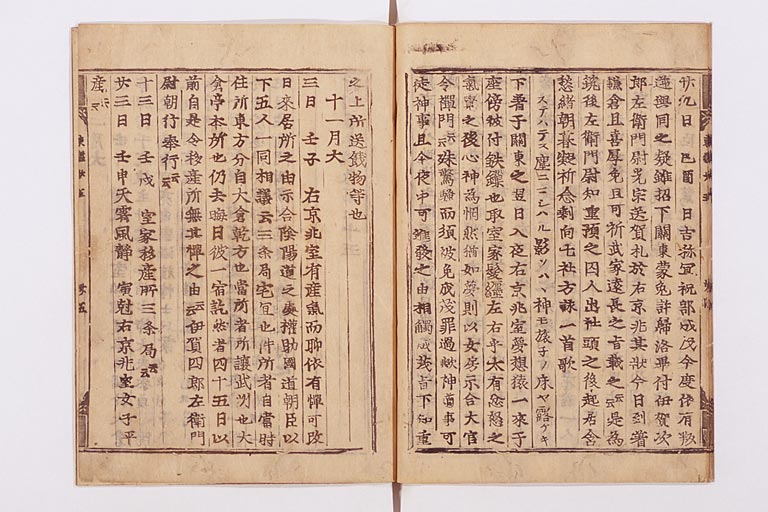 廿九日　己酉　日吉祢宜祝部成茂今度依有叛
逆與同之疑雖招下關東蒙免許歸洛畢付伊賀次
郎左衛門尉光宗送賀札於右京兆其狀今日到着
鎌倉且喜厚免且可祈武家遠長之旨載之云云是為
筑後左衛門尉知重預之囚人出社頭之後起居含
愁緒朝暮凝祈念剩向七社方詠一首歌
ステハテス塵ニマシハル影ソハヽ神モ旅子ノ床ヤ露ケキ
下著于關東之翌日入夜右京兆室夢想猿一來于
座傍被付鉄鏁也取室家髮纒左右手太有忿怒之
氣之後心神為惘然猶如夢則以女房示合大官
令禪門云云殊驚騷而須被免成茂罪過歟神事可
從神事且今夜中可進發之由相觸成茂吉下知重
之上所送餞物等也
十一月大
三日　壬子　右京兆室有產氣而聊依有憚可改
日來居所之由示合陰陽道之處權助國道朝臣以
下五人一同相議云云三条局宅宜也件所者自當時
住所東方分自大倉乾方也當所者所讓武州也大
倉亭本所也仍去晦日彼一宿訖然者四十五日以
前自是令移產所無其憚之由云云伊賀四郎左衛門
尉朝行奉行云云
十三日　壬戌　室家移產所三条局云云
廿三日　壬申　天霽風靜　寅尅右京兆室女子平
產云云